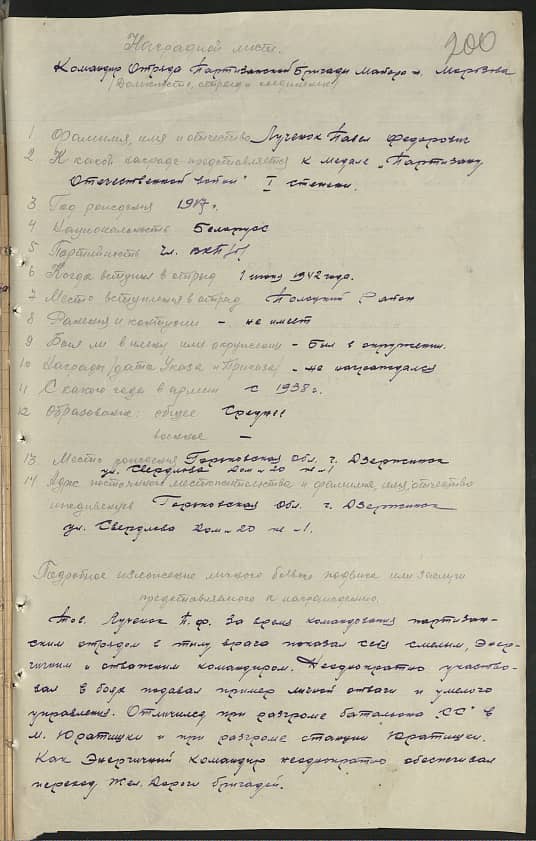 200
Наградной лист.
Командир Отряда Партизанской Бригады Майора т. Морозова
(Должность, отряд и соединение)
1 Фамилия, имя и отчество Лученок Павел Федорович
2 К какой награде представляется к медале „Партизану
Отечественной войны" I степени.
3 Год рождения 1917 г.
4 Национальность Беларус
5 Партийность Чл. ВКП(б)
6 Когда вступил в отряд 1 июня 1942 года.
7 Место вступления в отряд Полоцкий Район
8 Ранения и контузии – не имеет
9 Был ли в плену или окружении – Был в окружении.
10 Награды (дата Указа и Приказа) – не награждался
11 С какого года в армии с 1938 г.
12 Образование: общее Среднее
военное –
13. Место рождения Горьковская Обл. г. Дзержинск
ул. Свердлова Дом – 20 кв – 1
14 Адрес постоянного местожительства и фамилия, имя, отчество
Горьковская Обл. г. Дзержинск
ул. Свердлова Дом – 20 кв – 1.
Подробное изложение личного боевого подвига или заслуги
представляемого к награждению.
Тов. Лученок П. Ф. За время командования партизан-
ским отрядом в тылу врага показал себя смелым, Энер-
гичным и отважным командиром. Неоднократно участво-
вал в боях подавал пример личной отваги и умелого
управления. Отличился при разгроме батальона „СС" в
м. Юратишки и при разгроме станции Юратишки.
Как Энергичный Командир неоднократно обеспечивал
переход Жел. Дороги бригадой.